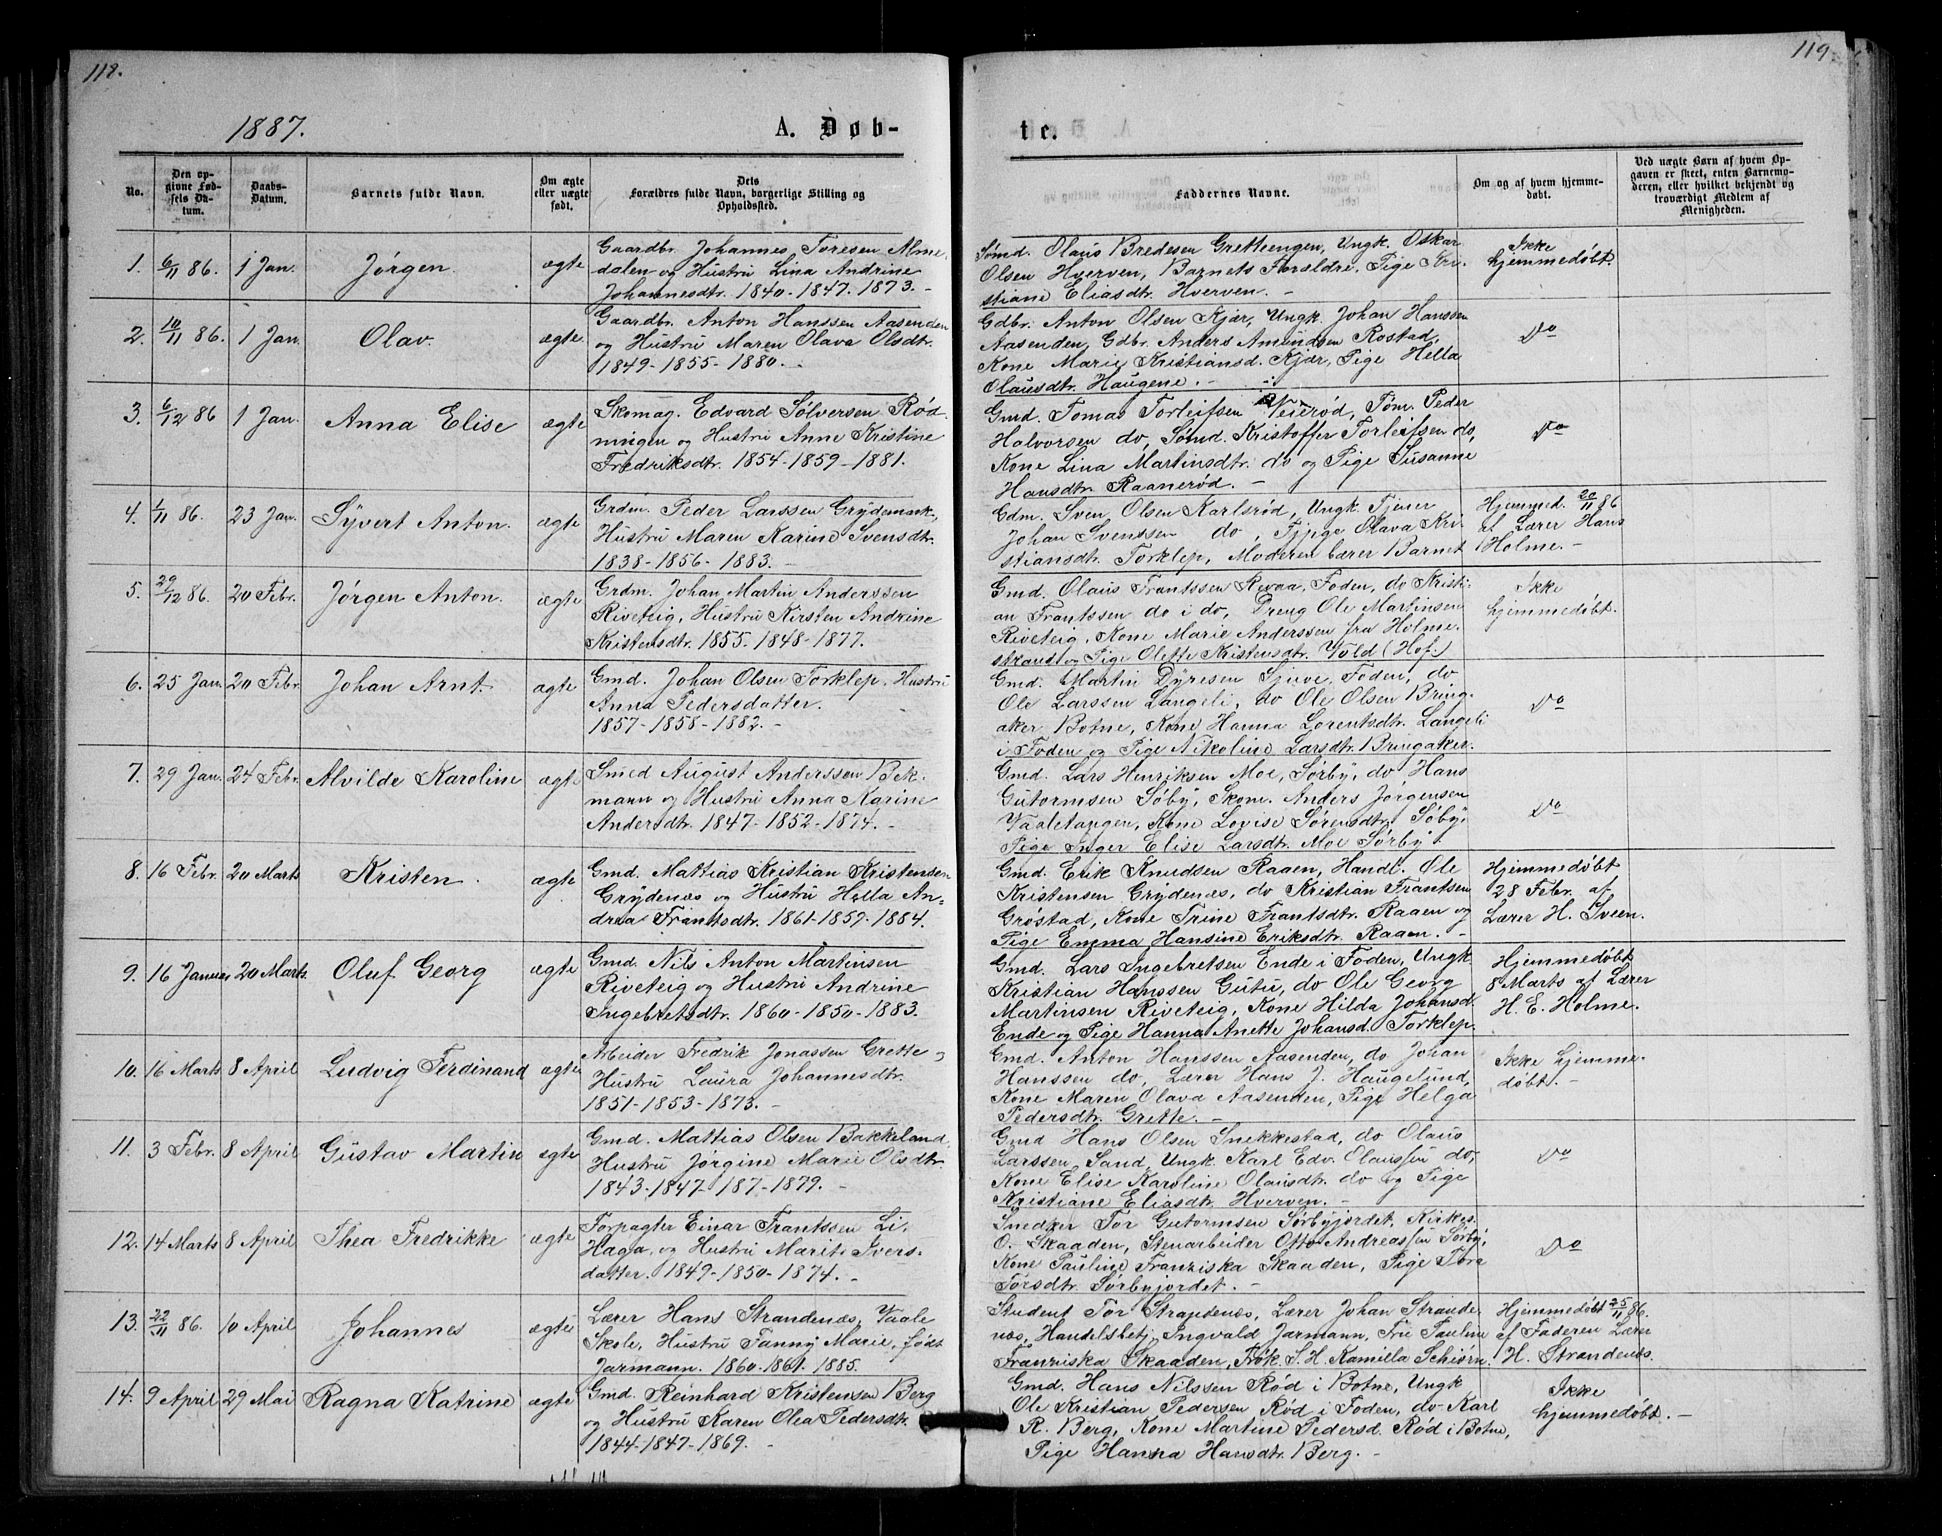 118.
1887.
A. Døb-
No.
Den op-
givne Fød-
sels Da-
tum.
Daabs-
Datum.
Barnets fulde Navn.
Om ægte
eller uægte
født.
Dets
Forældres fulde Navn, borgerlige Stilling og
Opholdssted.
1. 6/11 86. 1 Jan. Jørgen. ægte
Gaardbr. Johannes Toresen Alme-
dalen og Hustru Lina Andrine
Johannesdtr. 1840-1847. 1873. -
2. 10/11 86. 1 Jan. Olav. ægte.
Gaardbr. Anton Hanssen Aasenden
og Hustru Maren Olava Olsdtr.
1849-1855-1880. -
3. 6/12 86 1 Jan. Anna Elise ægte
Skomag. Edvard Sølversen Rød-
ningen og Hustru Anne Kristine
Fredriksdtr. 1854-1859-1881.
4. 1/11 86. 23 Jan. Syvert Anton. ægte
Grdm. Peder Larssen Grydemark,
Hustru Maren Karine Svensdtr.
1838-1856-1883. -
5. 29/12 86. 20 Febr. Jørgen Anton. ægte
Grdm. Johan Martin Anderssen
Riveteig, Hustru Kirsten Andrine
Kristensdtr. 1855-1848-1877.
6. 25 Jan. 20 Febr. Johan Arnt. ægte
Gmd. Johan Olsen Torklep, Hustru
Anna Pedersdatter.
1857-1858-1882. -
7. 29 Jan. 24 Febr. Alvilde Karoline ægte
Smed August Anderssen Bek-
mann og Hustru Anna Karine
Andersdtr. 1847-1852-1874. -
8. 16 Febr. 20 Marts Kristen. ægte
Gmd. Mattias Kristian Kristensen
Grydenes og Hustru Hella An-
drea Frantsdtr. 1861-1859-1884.
9. 16 Januar 20 Marts. Oluf Georg ægte
Gmd. Nils Anton Martinsen
Riveteig og Hustru Andrine
Ingebretsdtr. 1860-1850-1883.
10. 16 Marts 8 April Ludvig Ferdinand ægte
Arbeider Fredrik Jonassen Grette og
Hustru Laura Johannesdtr.
1851-1853-1873. -
11. 3 Febr. 8 April Gustav Martin ægte
Gmd. Mattias Olsen Bakkeland,
Hustru Jørgine Marie Olsdtr.
1843-1847-187-1879. -
12. 14 Marts 8 April Thea Fredrikke ægte
Forpagter Einar Frantssen Li-
Haga, og Hustru Marit Ivers-
datter. 1849-1850-1874. -
13. 22/11 86. 10 April Johannes ægte
Lærer Hans Strandenæs, Vaale
Skole, Hustru Fanny Marie, født
Jarmann. 1860-1861-1885.
14. 9 April 29 Mai Ragna Katrine ægte
Gmd. Reinhard Kristensen Berg
og Hustru Karen Olea Pedersdtr.
1844-1847-1869. -
119.
te.
Faddernes Navne.
Om og af hvem hjemme-
døbt.
Ved uægte Børn af hvem Op-
gaven er skeet, enten Barnemo-
deren, eller hvilket bekjendt og
troværdigt Medlem af
Menigheden.
Sømd. Olaus Bredesen Gretteengen, Ungk. Oskar
Olsen Hverven, Barnets Forældre, Pige Kri-
stiane Eliasdtr. Hverven. -
Ikke
hjemmedøbt.
Gdbr. Anton Olsen Kjær, Ungk. Johan Hanssen
Aasenden, Gdbr. Anders Amundsen Rostad,
Kone Marie Kristiansd. Kjær, Pige Hella
Olausdtr. Haugene. -
Do
Gmd. Tomas Torleifsen Veierød, Tøm. Peder
Halvorsen do, Sømd. Kristoffer Torleifsen do,
Kone Lina Martinsdtr. do og Pige Susanne
Hansdtr. Raanerød. -
Do
Gdm. Sven Olsen Karlsrød, Ungk. Tjener
Johan Svenssen do, Tjpige Olava Kri-
stiansdtr. Torklep, Moderen bærer Barnet
Hjemmed. 20/11 86
af Lærer Hans
Holme. -
Gmd. Olaus Frantssen Revaa, Foden, do Kristi-
an Frantssen do i do, Dreng Ole Martinsen
Riveteig, Kone Marie Anderssen fra Holme-
strand og Pige Olette Kristensdtr. Vold (Hof.)
Ikke
hjemmedøbt.
Gmd. Martin Dyresen Gjuve, Foden, do
Ole Larssen Langeli, do Ole Olsen Bring-
aker Botne, Kone Hanna Lorentsdtr. Langeli
i Foden og Pige Nikoline Larsdtr. Bringaker.
Do
Gmd. Lars Henriksen Moe, Sørby, do Hans
Gutormsen Søby, Skom. Anders Jørgensen
Vaaletangen, Kone Lovise Sørensdtr. Søby,
Pige Inger Elise Larsdtr. Moe Sørby.
Do
Gmd. Erik Knudsen Raaen, Handl. Ole
Kristensen Grydenes, do Kristian Frantsen
Grøstad, Kone Trine Frantsdtr. Raaen og
Pige Emma Hansine Eriksdtr. Raaen. -
Hjemmedøbt
28 Febr. af
Lærer H. Sveen.
Gmd. Lars Ingebretsen Ende i Foden, Ungk.
Kristian Hanssen Gutu, do Ole Georg
Martinsen Riveteig, Kone Hilda Johansd.
Ende og Pige Hanna Anette Johansd. Torklep.
Hjemmedøbt
8 Marts af Lærer
H. E. Holme.
Gmd. Anton Hanssen Aasenden, do Johan
Hanssen do, Lærer Hans J. Haugelund,
Kone Maren Olava Aasenden, Pige Helga
Pedersdtr. Grette. -
Ikke hjemme-
døbt. -
Gmd Hans Olsen Snekkestad, do Olaus
Larssen Sand, Ungk. Karl Edv. Olaussen do,
Kone Elise Karoline Olausdtr. do og Pige
Kristiane Eliasdtr. Hverven. -
Do
Snedker Tor Gutormsen Sørbyjordet, Kirkes.
O. Skaaden, Stenarbeider Otto Andreassen Sørby,
Kone Pauline Franziska Skaaden, Pige Tora
Torsdtr. Sørbyjordet. -
Do
Student Tor Strandenæs, Lærer Johan Strande-
næs, Handelsbetj. Ingvald Jarmann, Fru Pauline
Franziska Skaaden, Frøk. S. H. Kamilla Schiørn.
Hjemmedøbt 25/11 86.
af Faderen Lærer
H. Strandenæs.
Gmd. Hans Nilssen Rød i Botne, Ungk
Ole Kristian Pedersen Rød i Foden, do Karl
R. Berg, Kone Martine Pedersd. Rød i Botne,
Pige Hanna Hansdtr. Berg. -
Ikke
hjemmedøbt. -